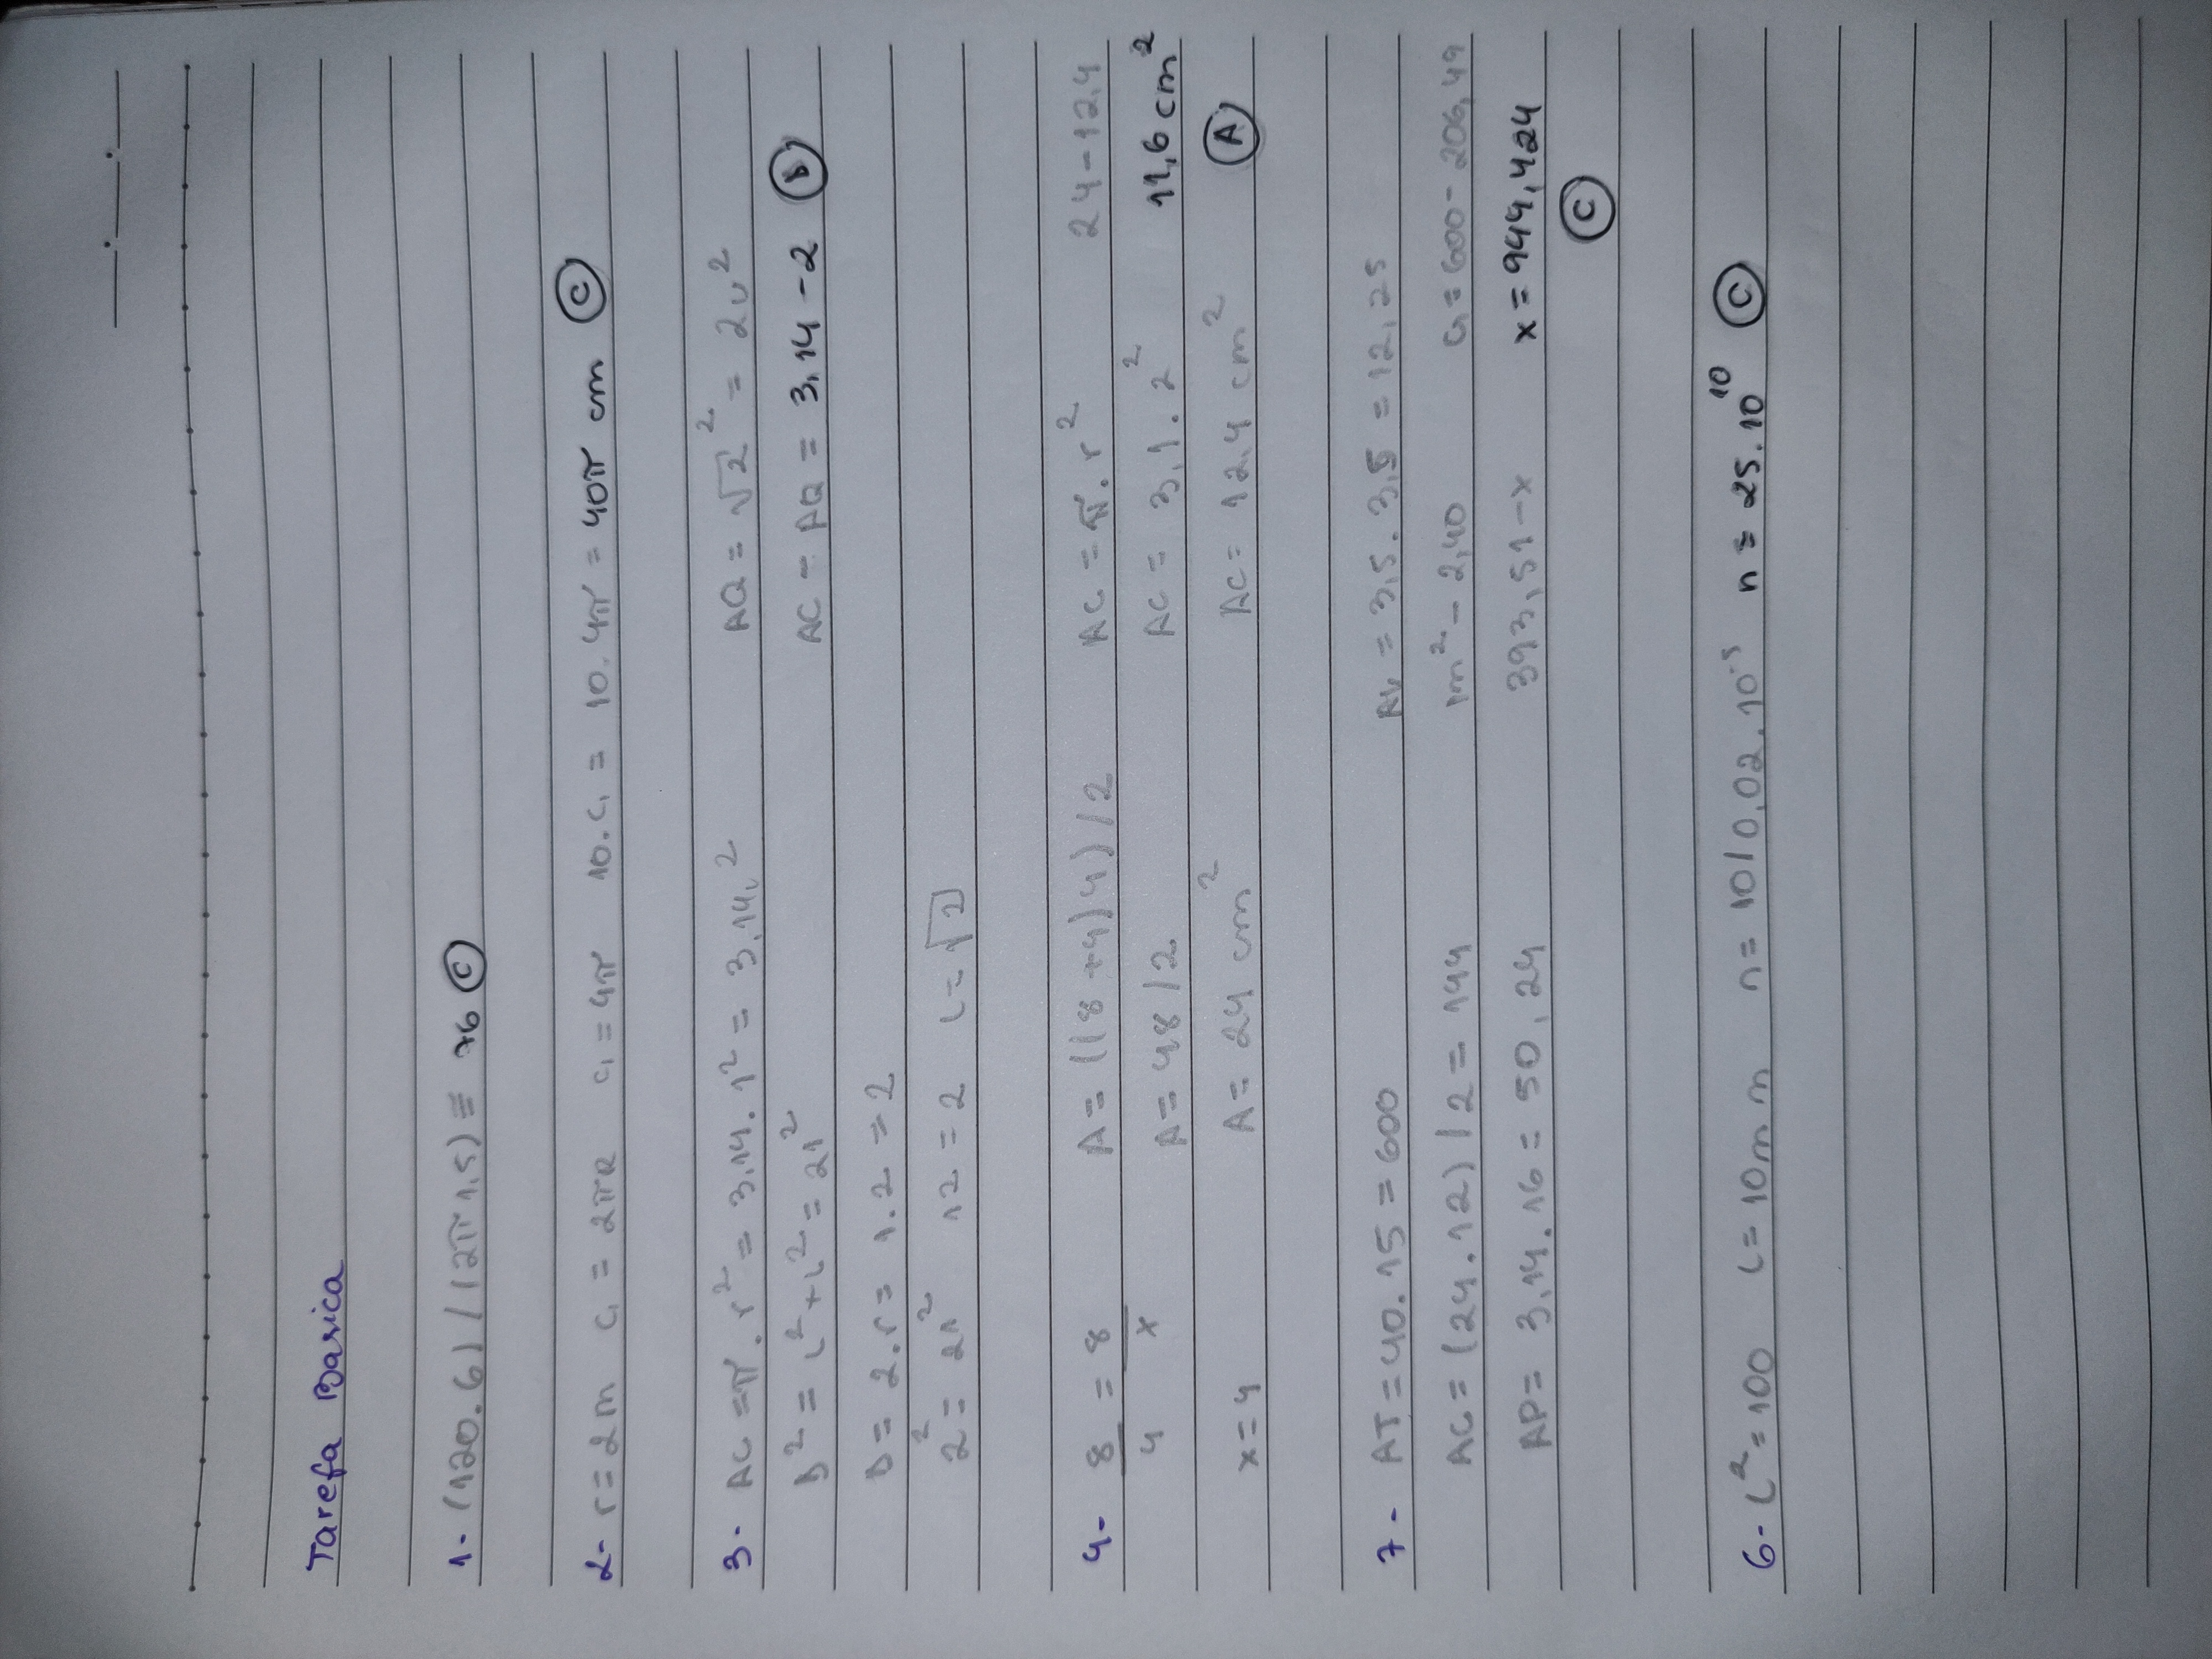 Tarefa Basica
1- (120.6) / (2π 1,5) = 76 C
2- r = 2m C₁ = 2πR C₁ = 4π 10.C₁ = 10.4π = 40π cm C
3- AC = π.r² = 3,14.1² = 3,14u² AQ = √2² = 2u²
D² = L²+L² = 2l² AC - AQ = 3,14 - 2 B
D = 2.r = 1.2 = 2
2² = 2l² l2 = 2 L = √2
4- 8/4 = 8/x A = ((8+4)4)/2 AC = π.r² 24-12,4
A = 48/2 AC = 3,1.2² 11,6 cm²
x = 4 A = 24 cm² AC = 12,4 cm² A
7- AT = 40.15 = 600 AV = 3,5.3,5 = 12,25
AC = (24.12)/2 = 144 1m² - 2,40 G = 600 - 206,49
AP = 3,14.16 = 50,24 393,51 - x x = 944,424
C
6- L² = 100 L = 10m m n = 10/0,02.10⁻⁵ n = 25.10¹⁰ C